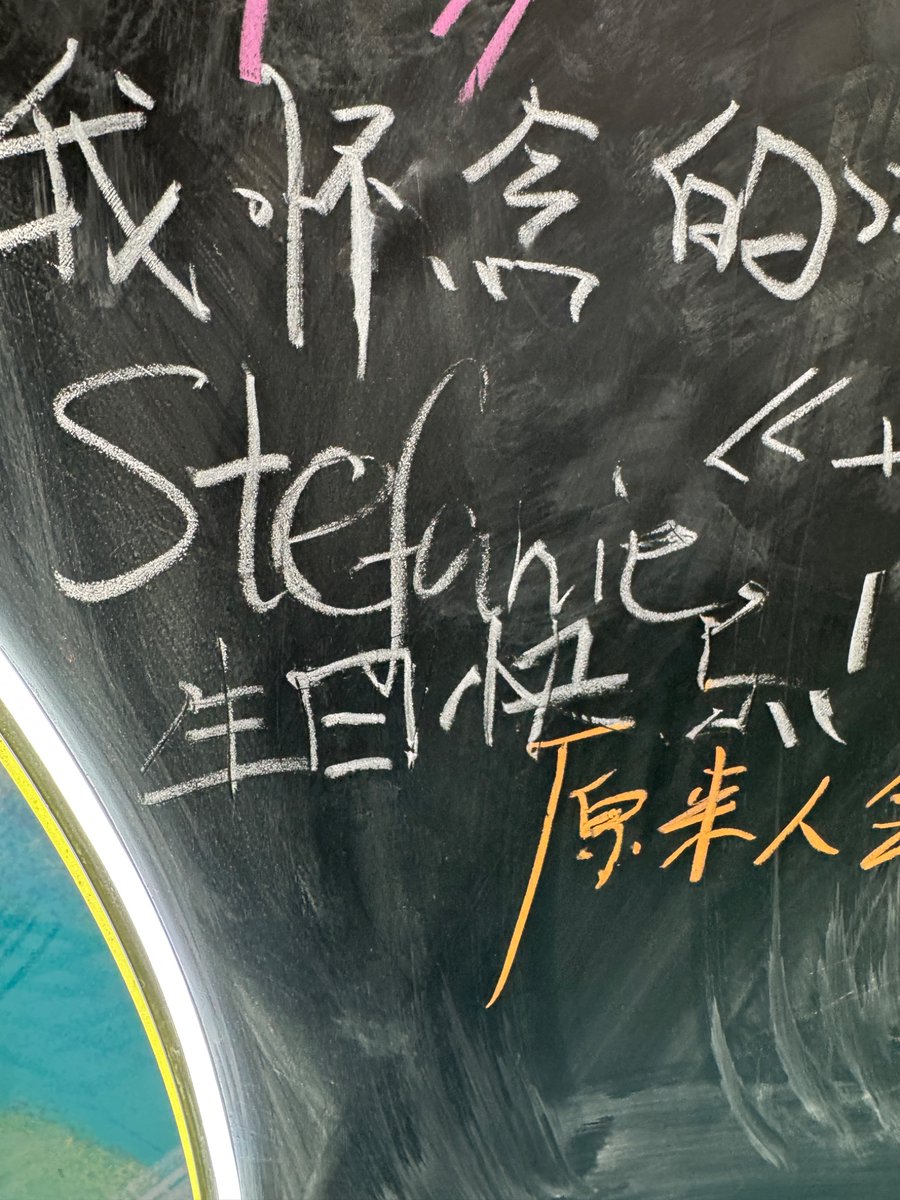 我怀念的
Stefanie 《
生日快乐
原来人